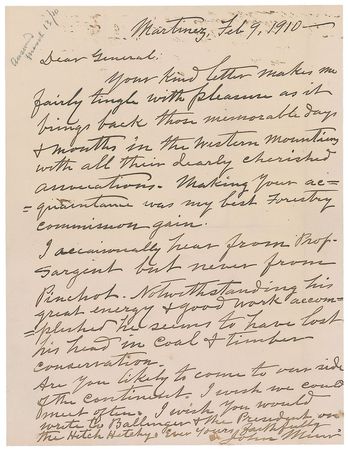 Answered
March 12/10
Martinez, Feb 9, 1910 —
Dear General:
Your kind letter makes me
fairly tingle with pleasure as it
brings back those memorable days
& months in the Western Mountains
with all their dearly cherished
associations. Making your ac-
=quaintance was my best Forestry
commission gain.
I occasionally hear from Prof.
Sargent but never from
Pinchot. Notwithstanding his
great energy & good work accom-
=plished he seems to have lost
his head in coal & timber
conservation.
Are you likely to come to our side
of the continent. I wish we could
meet often. I wish you would
write to Ballinger & the President on
the Hetch Hetchy. Ever Yours, Faithfully
John Muir